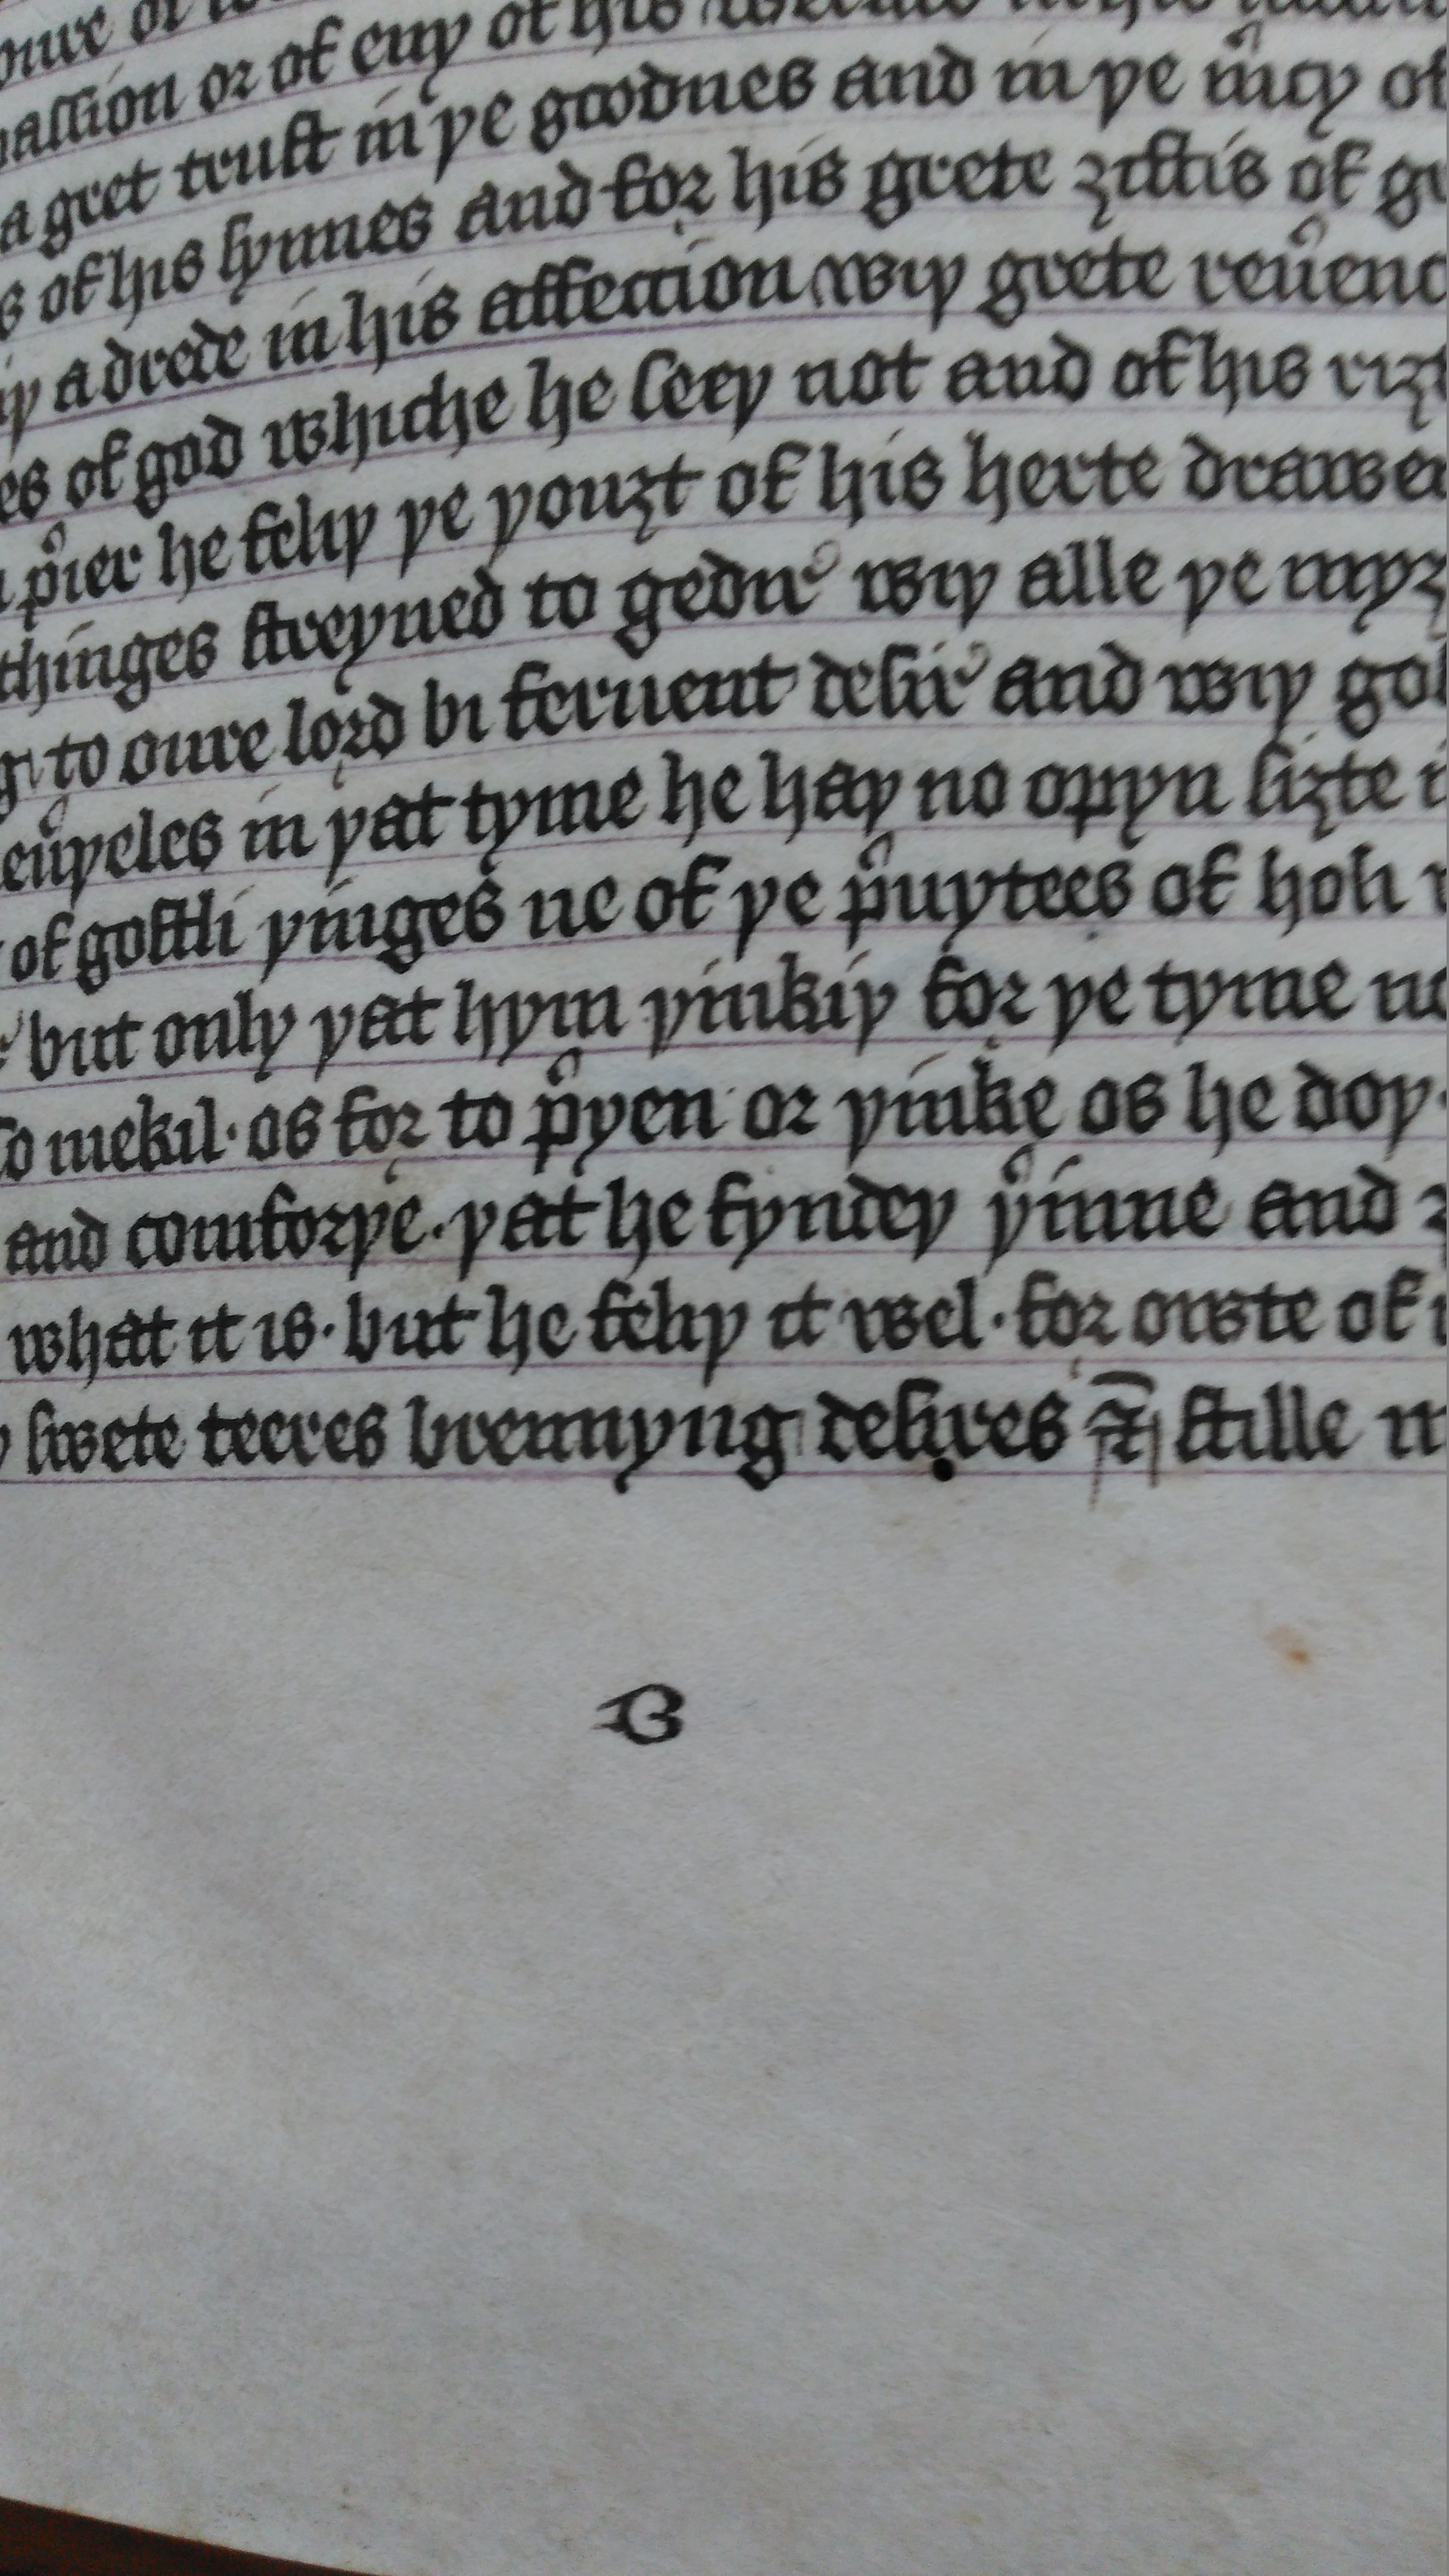 or of eny of his
a gret trust in þe goodnes and in þe m̉cy of
of his synnes and for his grete ȝiftis of
a drede in his affeccion wiþ grete reủenc
es of god whiche he seeþ not and of his riȝt
p̉ier he feliþ þe þouȝt of his herte drawen
thinges streyned to gedir̉ wiþ alle þe myȝ
to oure lord bi feruent desir̉ and wiþ
neủþeles in þat tyme he haþ no opyn siȝte
of gostli þinges ne of þe p̉uytees of holi
but only þat hym þinkiþ for þe tyme
so mekil · os for to p̉yen or þinke os he doþ ·
and comforþe · þat he fyndeþ þ̉inne and
what it is · but he feliþ it wel · for owte of
swete teeres brennyng desires ⁊̄ stille
B